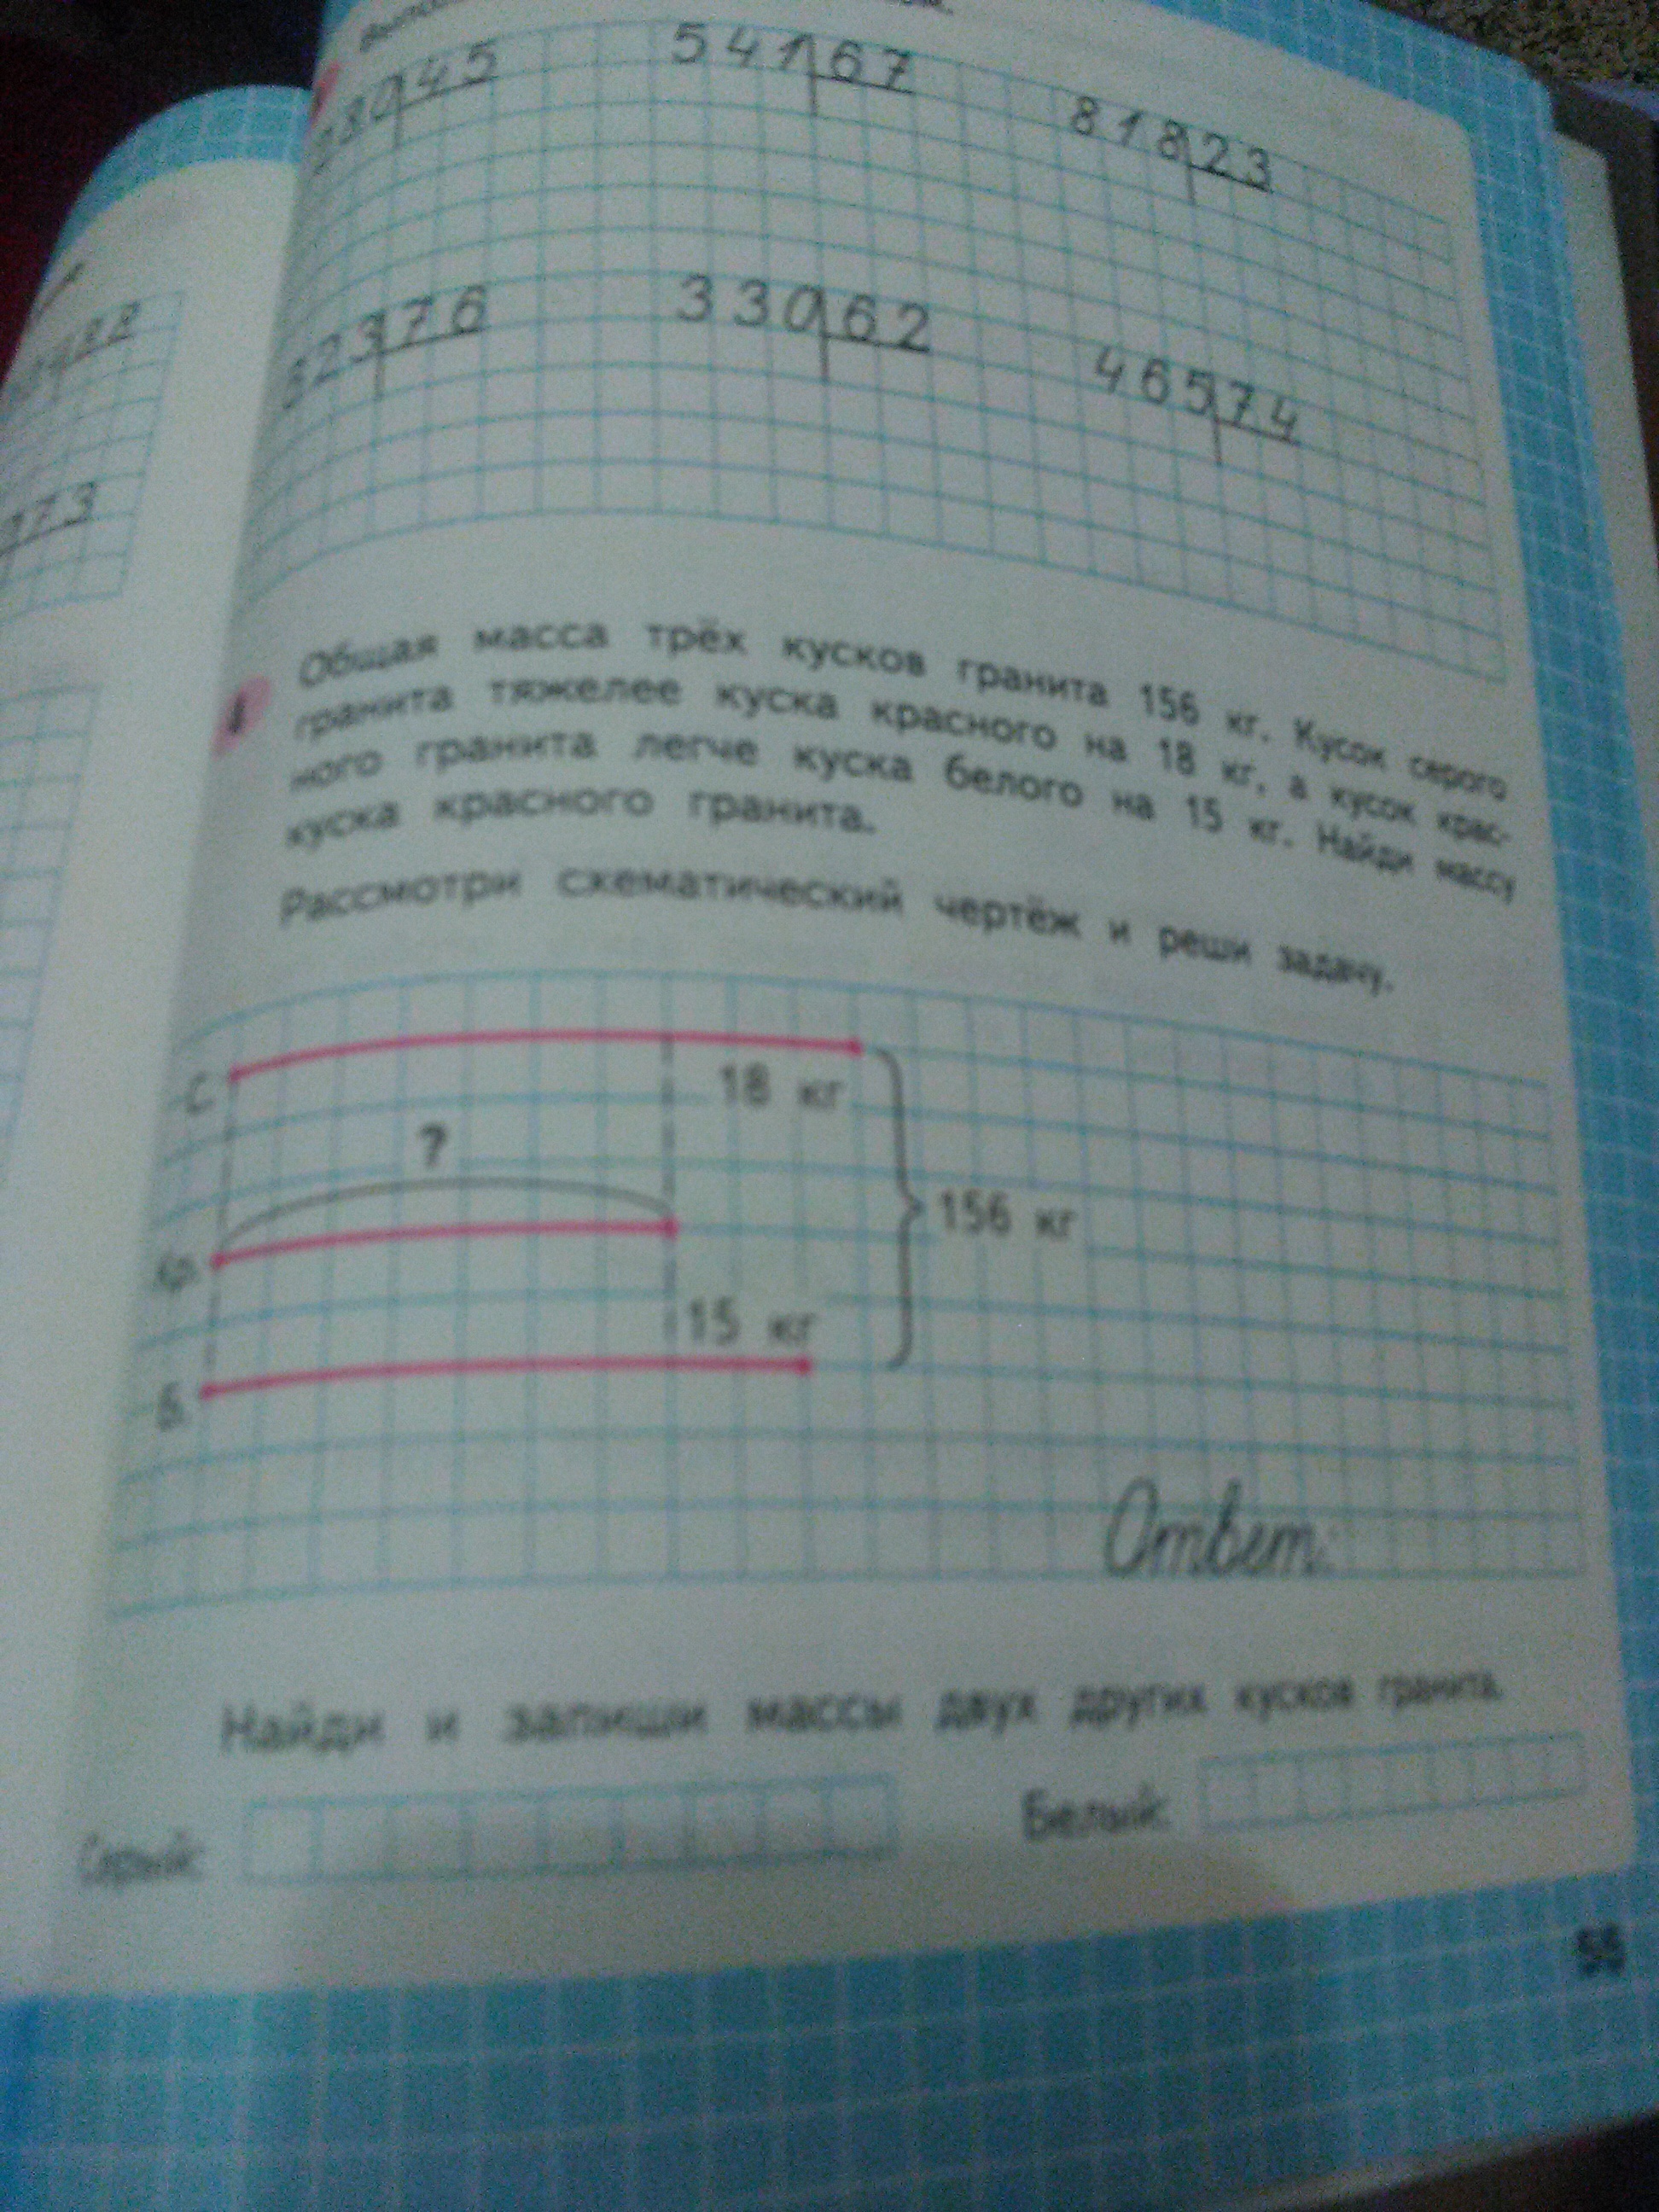 80 45
541 67
818 23
23 76
330 62
465 74
73
4
Общая масса трёх кусков гранита 156 кг. Кусок серого
гранита тяжелее куска красного на 18 кг, а кусок крас-
ного гранита легче куска белого на 15 кг. Найди массу
куска красного гранита.
Рассмотри схематический чертёж и реши задачу.
С.
18 кг
?
Кр.
156 кг
15 кг
Б.
Ответ:
Найди и запиши массы двух других кусков гранита.
Серый:
Белый:
55